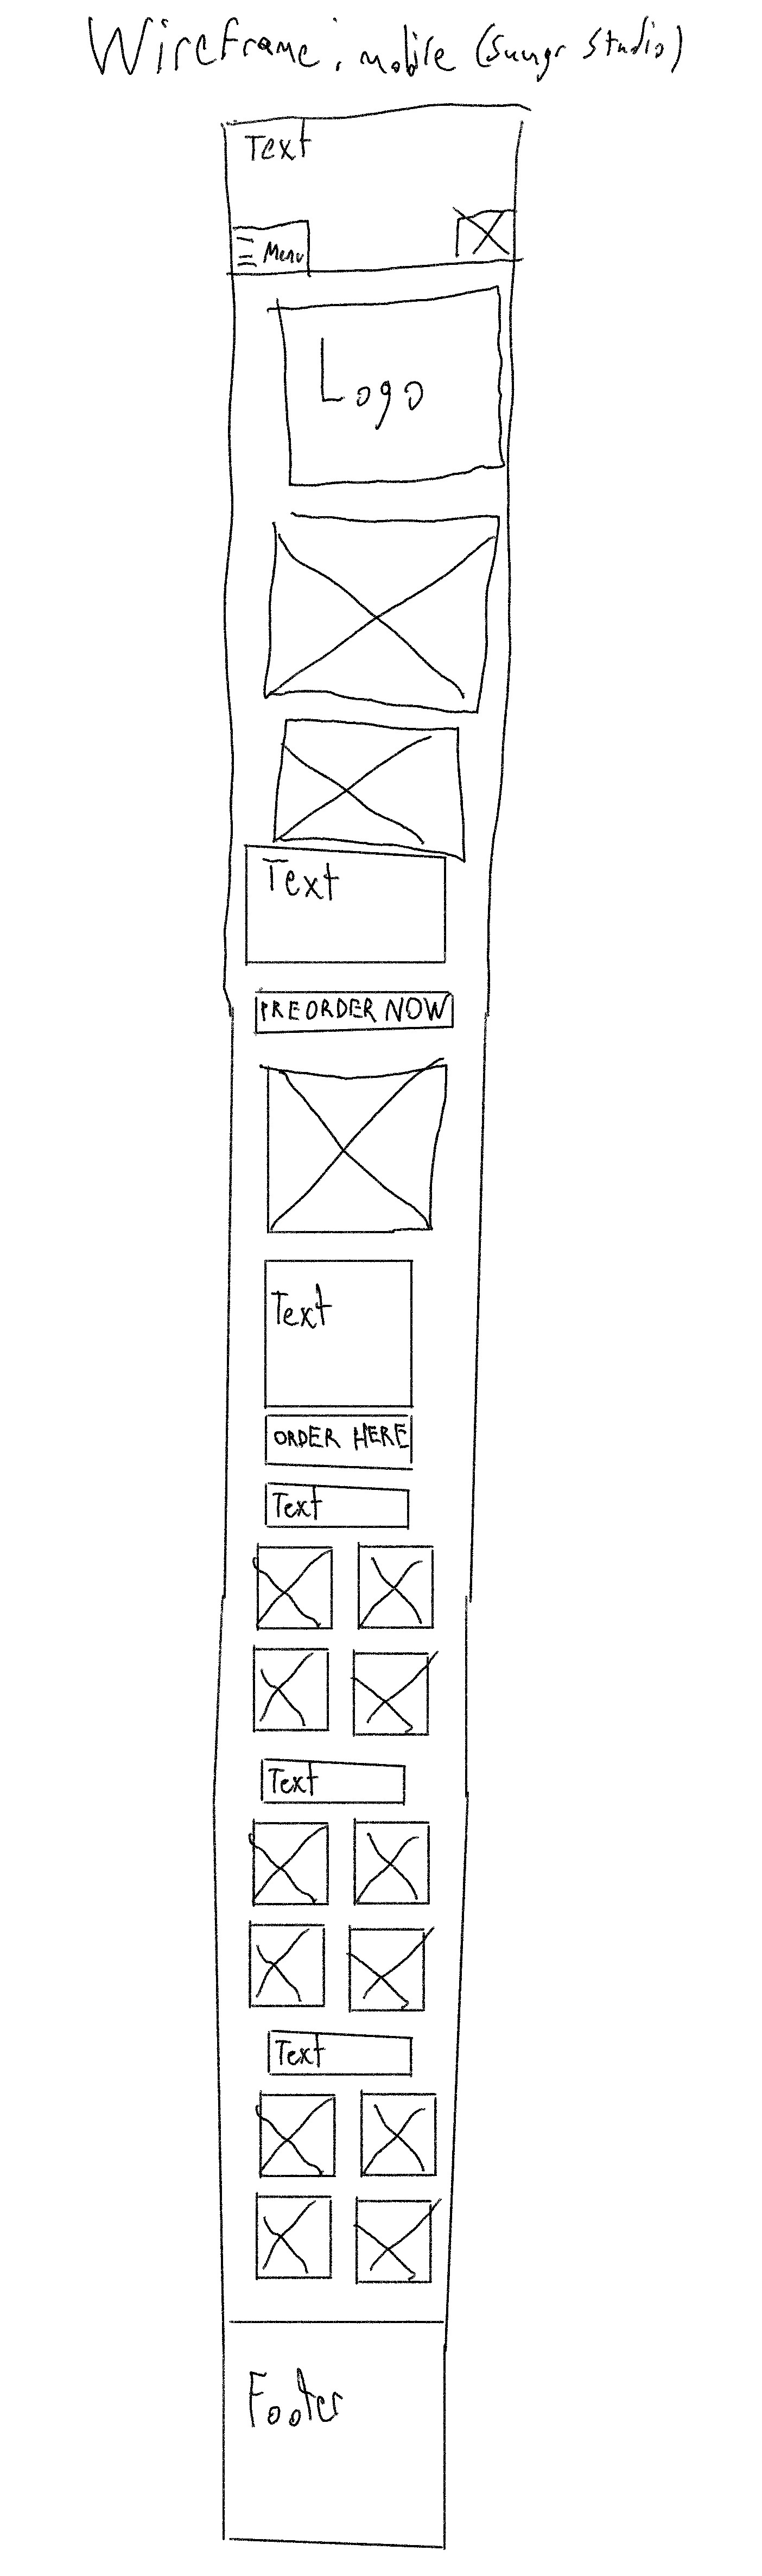 Wireframe: mobile (Sungr Studio)
Text
Menu
Logo
Text
PREORDER NOW
Text
ORDER HERE
Text
Text
Text
Footer